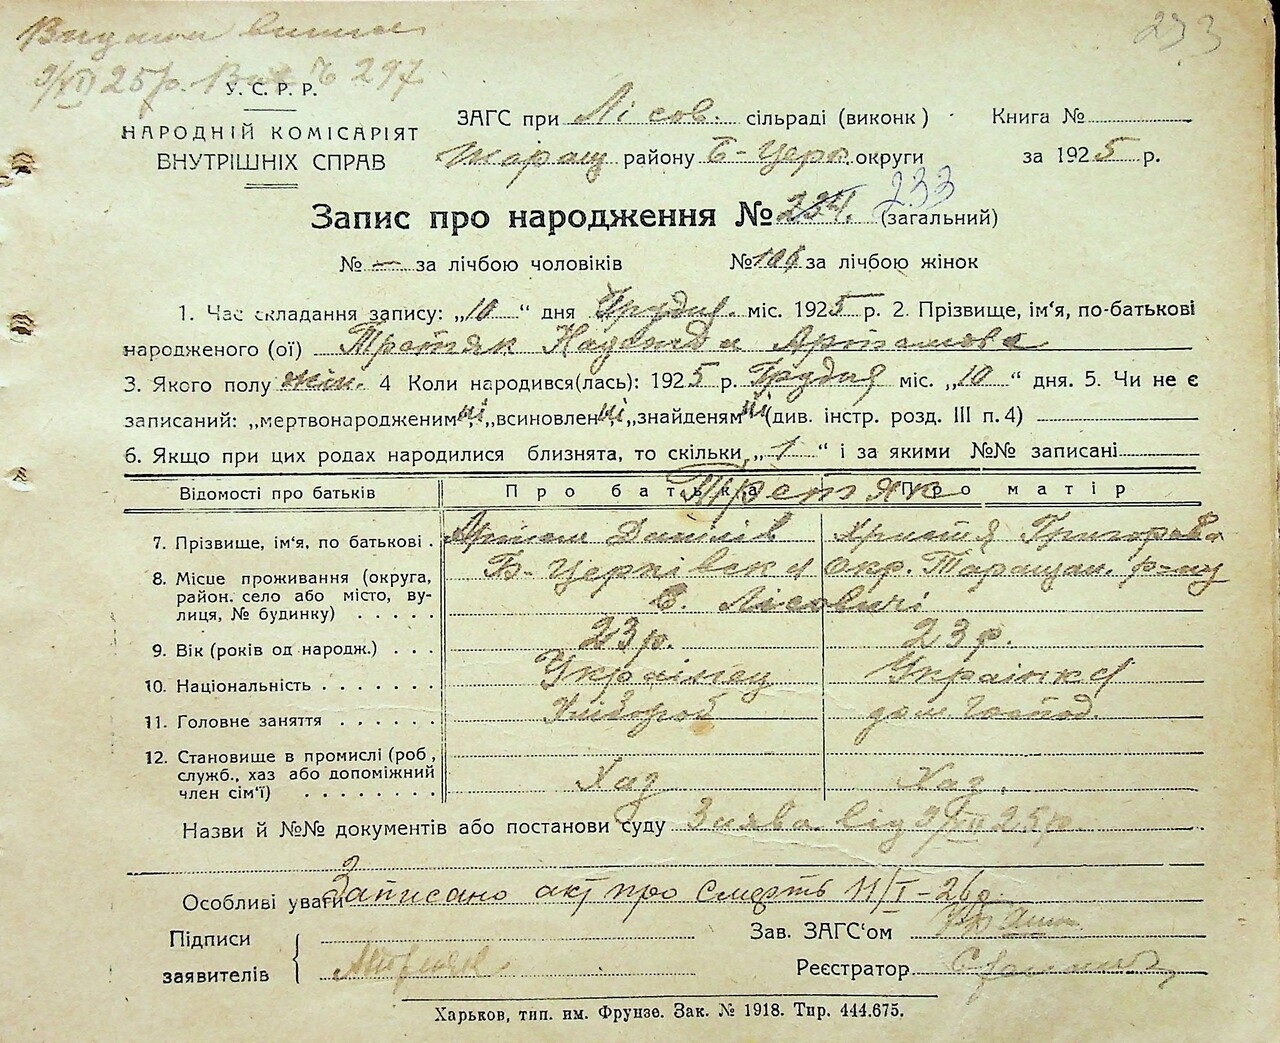 233
Видана випис
9/XII 25р. № 297
У.С.Р.Р.
НАРОДНІЙ КОМІСАРІЯТ
ВНУТРІШНІХ СПРАВ
ЗАГС при Лісов. сільраді (виконк) Книга №
Таращ району Б-Церк. округи за 1925 р.
Запис про народження № 234. 233 (загальний)
№ — за лічбою чоловіків № 106 за лічбою жінок
1. Час складання запису: „10“ дня Грудня. міс. 1925 р. 2. Прізвище, ім'я, по-батькові
народженого (ої) Третяк Надежда Артемова
3. Якого полу жін. 4 Коли народився(лась): 1925 р. Грудня міс. „10“ дня. 5. Чи не є
записаний: „мертвонародженим ні „всиновлен ні „знайденям ні (див. інстр. розд. III п. 4)
6. Якщо при цих родах народилися близнята, то скільки „1“ і за якими №№ записані
Відомості про батьків Про батька Про матір
Третяк
7. Прізвище, ім'я, по батькові . Артем Данілів Христя Григорова
8. Місце проживання (округа, Б-Церківська Окр. Таращан. р-ну
район. село або місто, ву-
лиця, № будинку) . . . . . С. Лісовичі
9. Вік (років од народж.) . . . 23 р. 23 р.
10. Національність . . . . . . . Українец Українка
11. Головне заняття . . . . . . Хлібороб дом. господ.
12. Становище в промислі (роб,
служб., хаз або допоміжний
член сім'ї) . . . . . . . . Хаз Хаз.
Назви й №№ документів або постанови суду Заява від 9/XII 25 р.
Особливі уваги Записано акт про смерть 11/I-26 р.
Підписи
заявителів АТретяк
Зав. ЗАГС'ом
Реєстратор
Харьков, тип. им. Фрунзе. Зак. № 1918. Тир. 444.675.